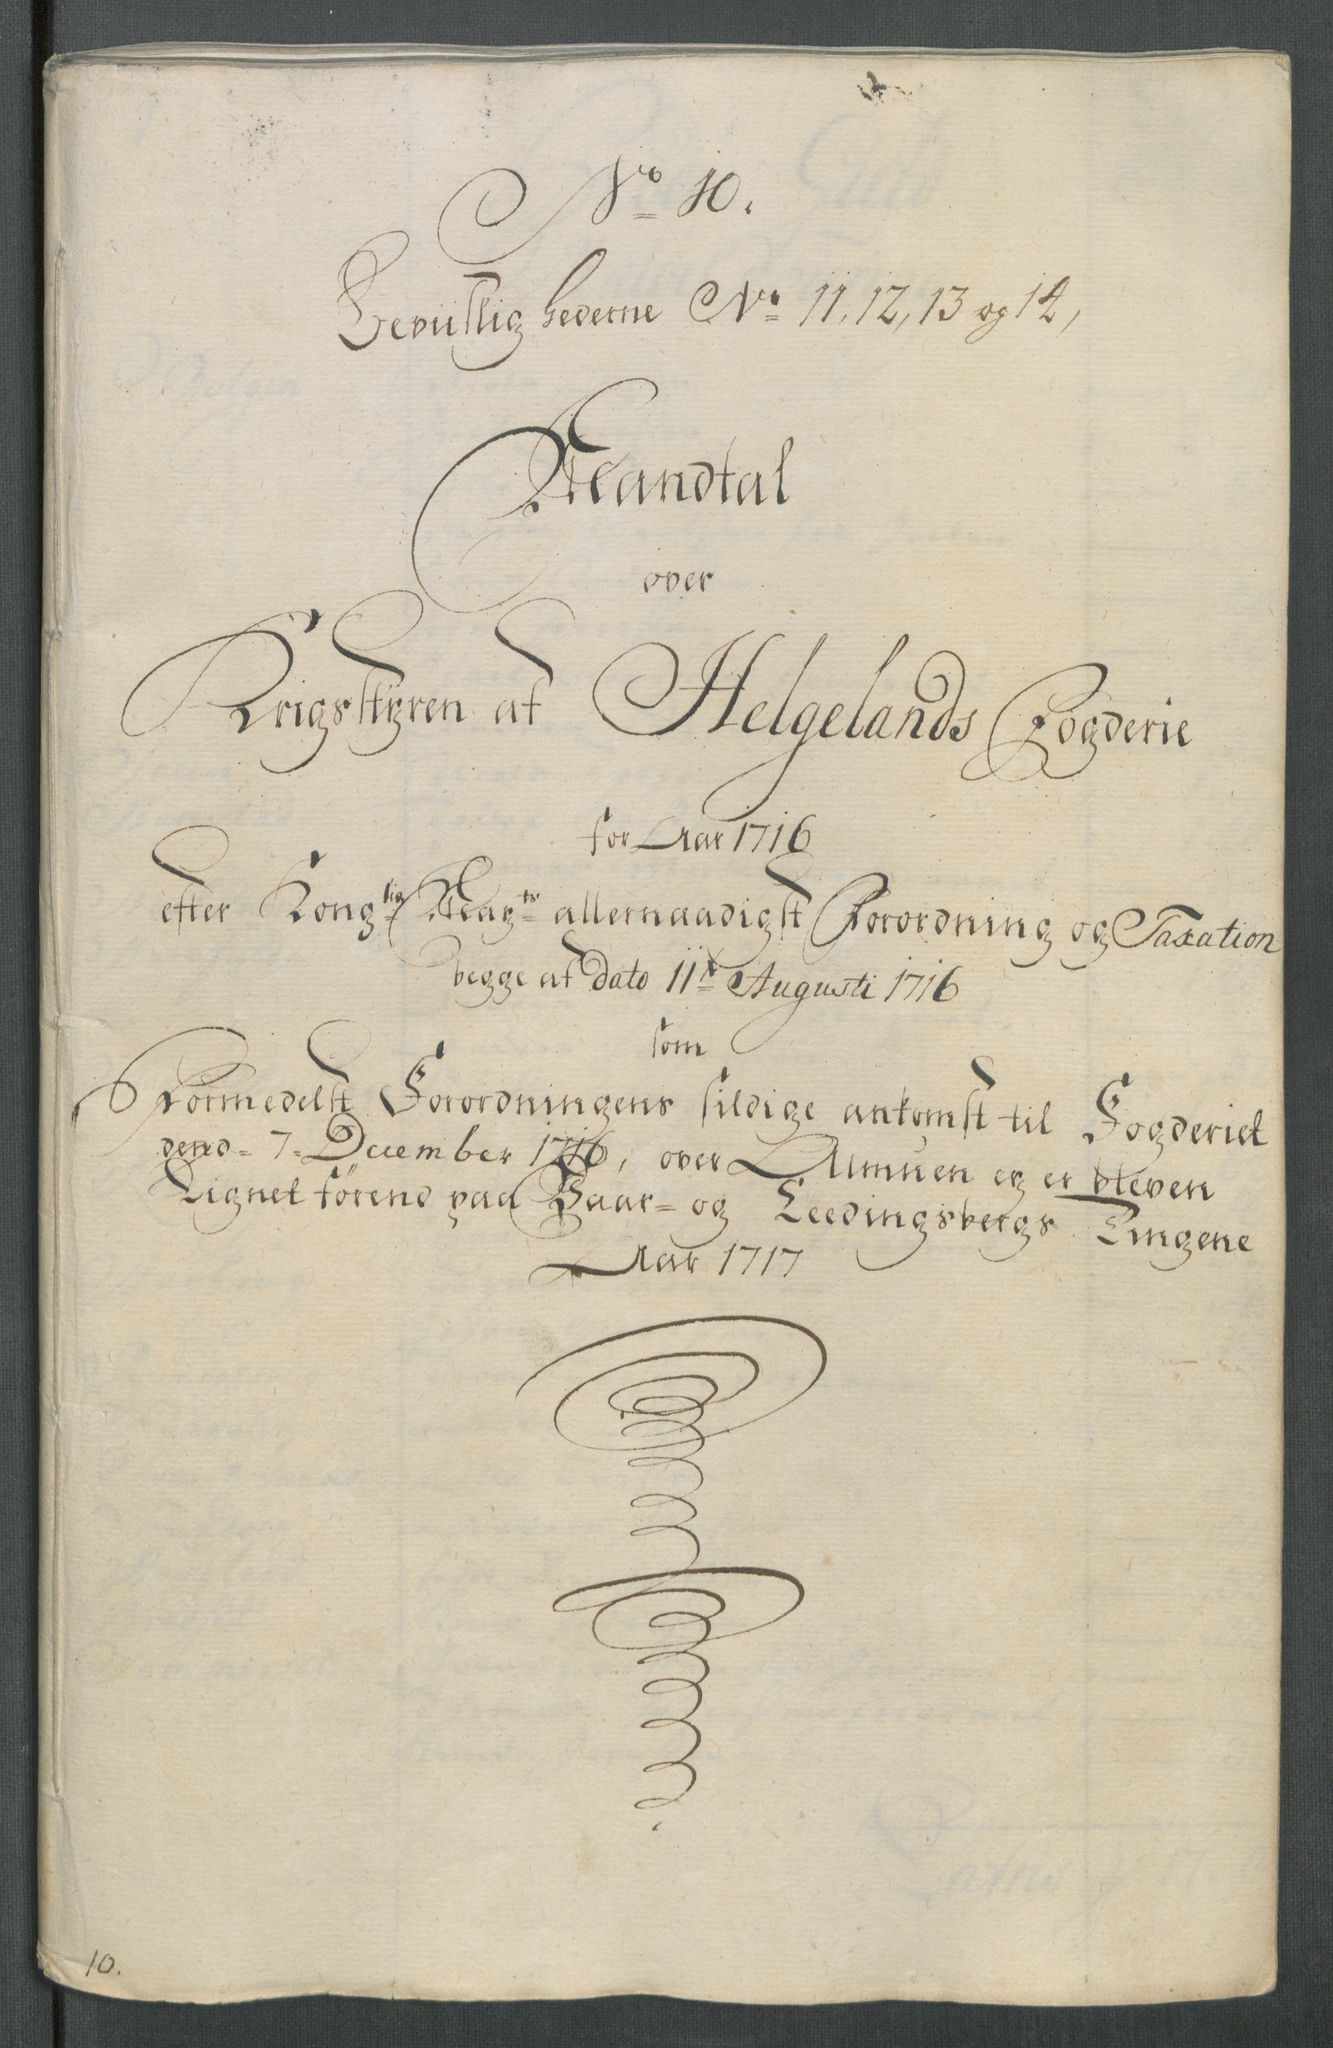 No 10.
Beviislighederne No 11, 12, 13 og 14,
Mandtal
over
Krigsstyren af Helgelands Fogderie
for Aar 1716
efter Konglig Mayts allernaadigst Forordning og Taxation
begge af Dato 11te Augusti 1716
som
Formedelst Forordningens sildige ankomst til Fogderiet
dend 7 December 1716, over Almuen ey er bleven
Lignet førend paa Vaar- og Leedingsbergs Tingene
Aar 1717
10.